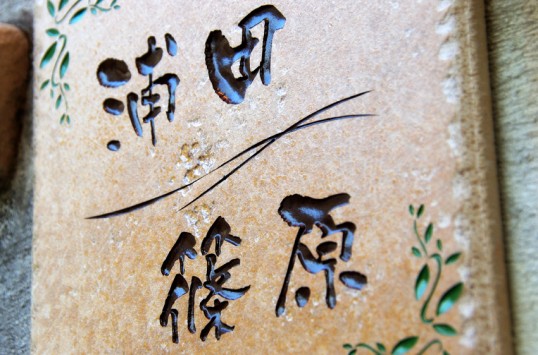 浦田
篠原